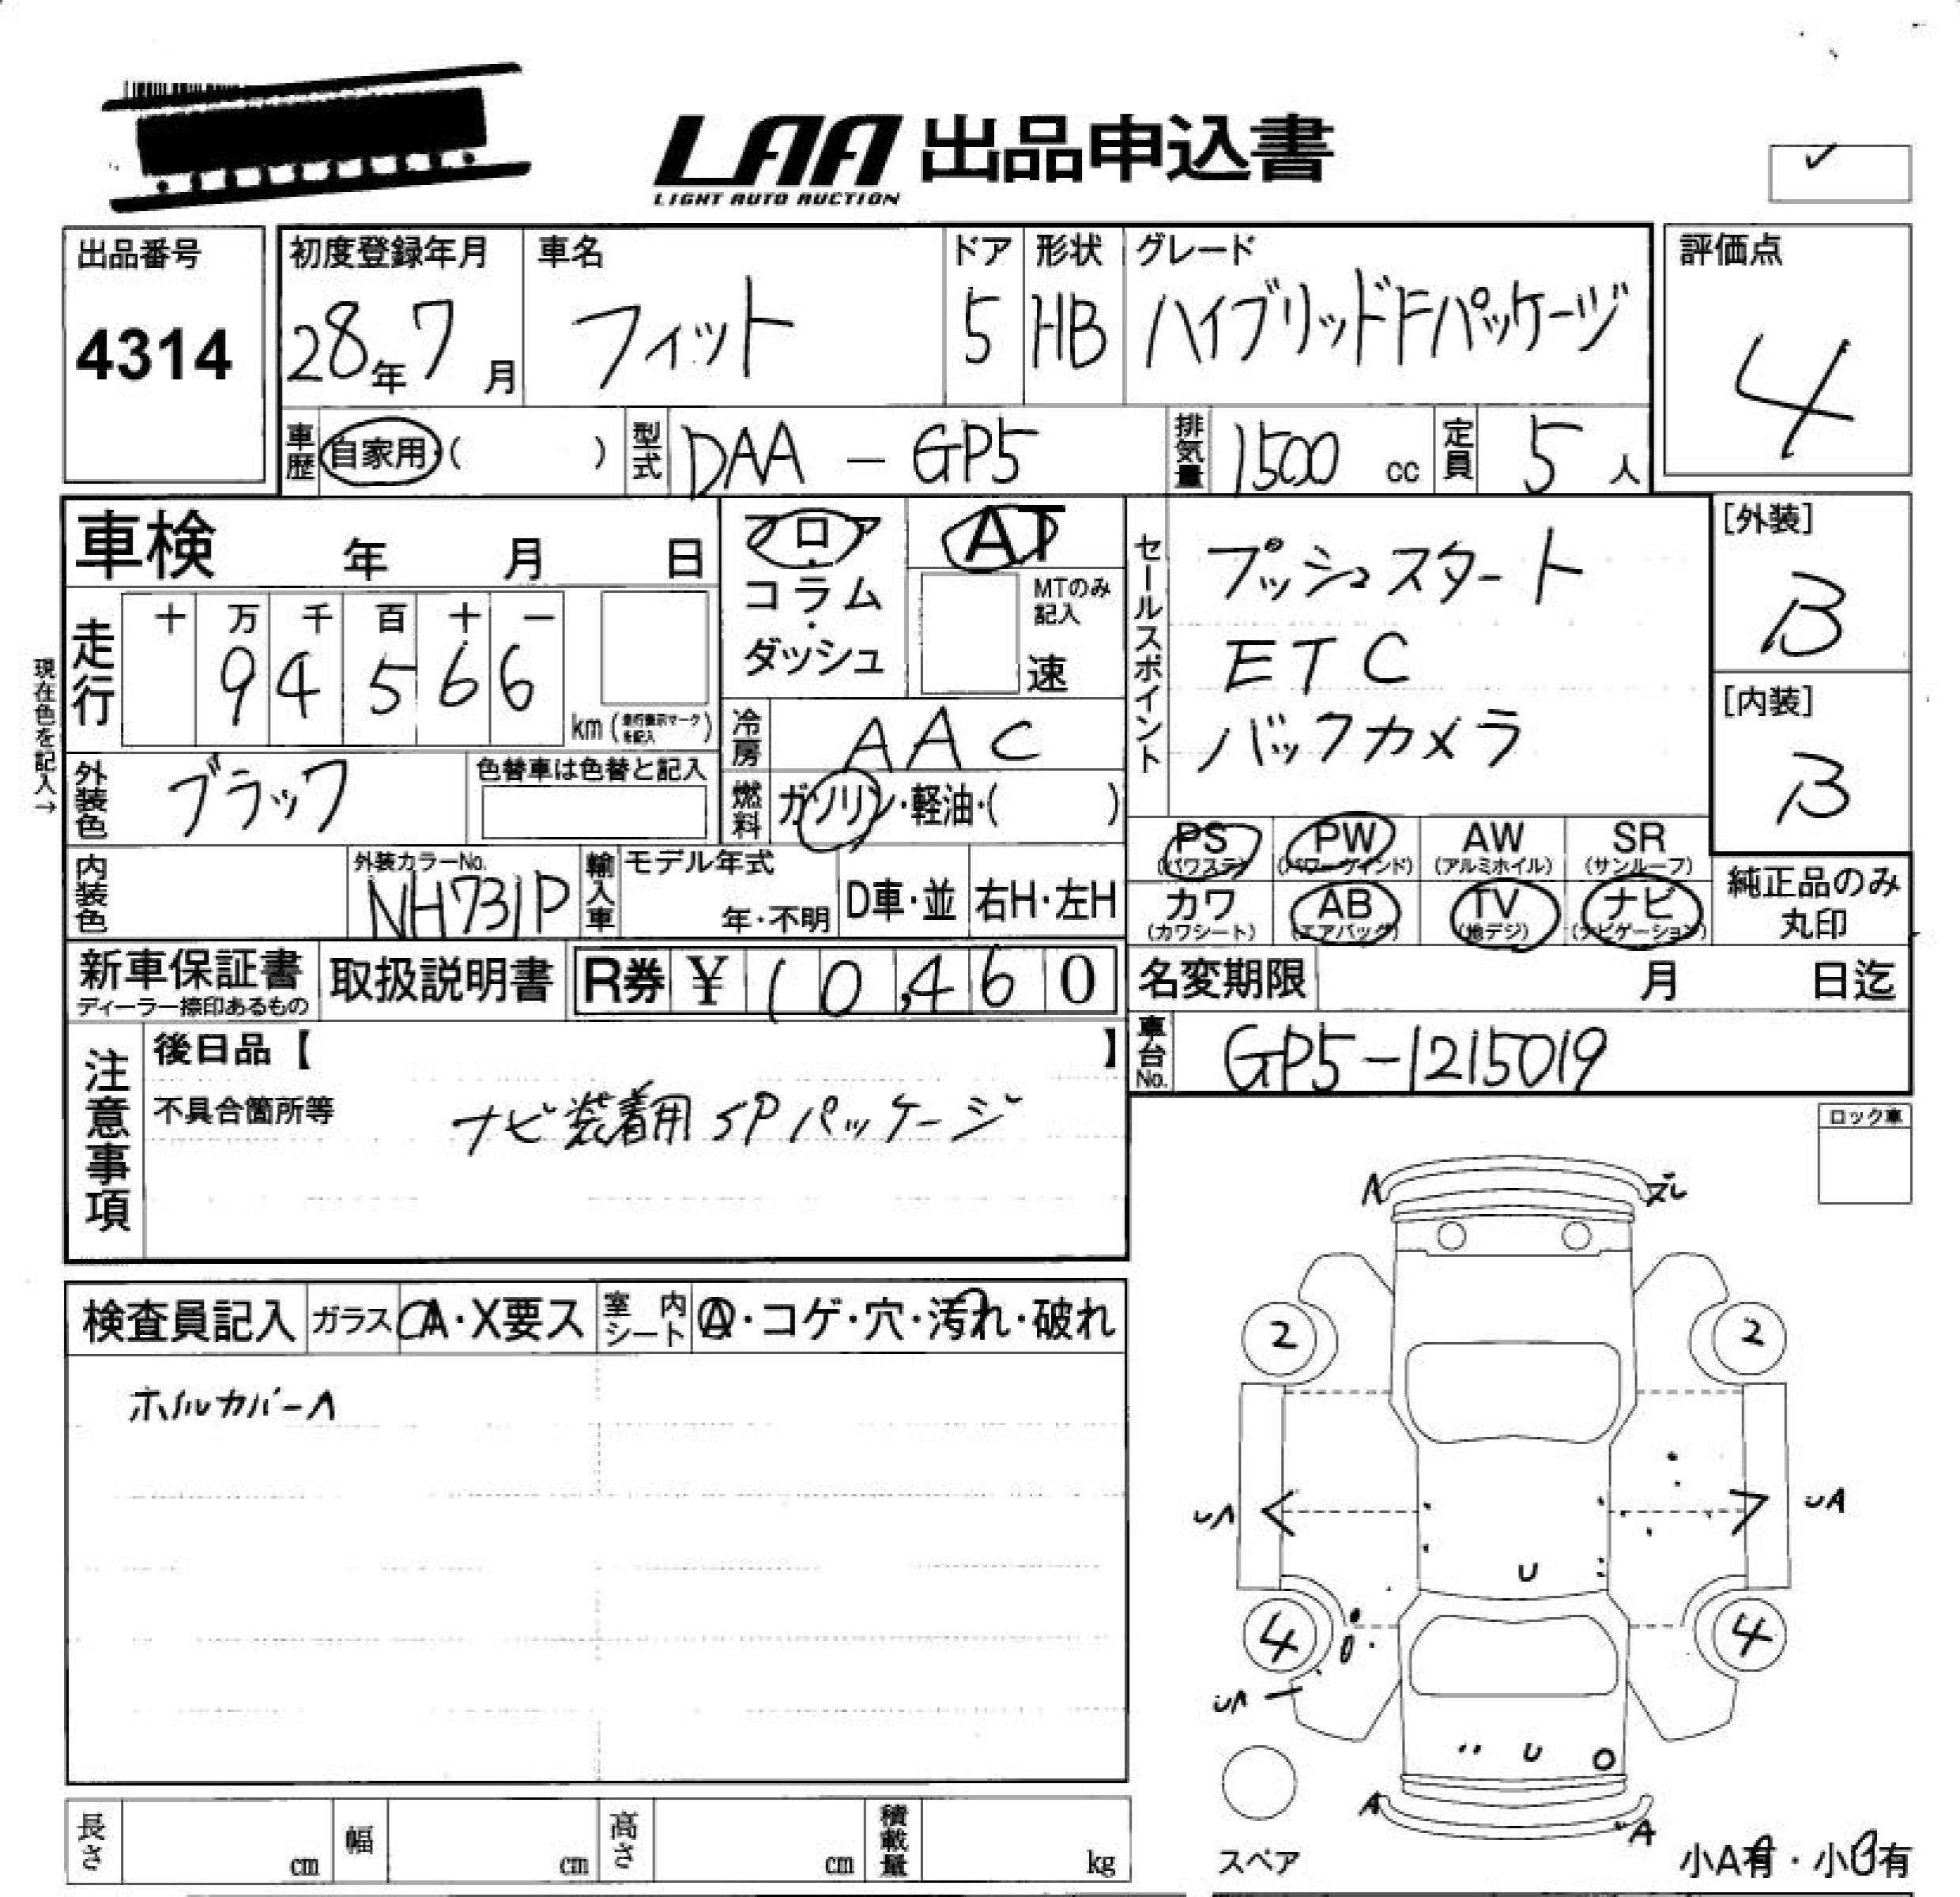 LAA 出品申込書
LIGHT AUTO AUCTION
✓
出品番号
4314
初度登録年月
28年7月
車名
フィット
ドア
5
形状
HB
グレード
ハイブリッドFパッケージ
評価点
4
車歴
自家用・( )
型式
DAA - GP5
排気量
1500 cc
定員
5人
車検 年 月 日
フロア
・
コラム
・
ダッシュ
AT
MTのみ
記入
速
セールスポイント
プッシュスタート
ETC
バックカメラ
[外装]
B
[内装]
B
現在色を記入→
走行
十 万 千 百 十 一
9 4 5 6 6
km (走行表示マークを記入)
冷房
AAC
外装色
ブラック
色替車は色替と記入
燃料
ガソリン・軽油・( )
PS
(パワステ)
PW
(パワーウインド)
AW
(アルミホイル)
SR
(サンルーフ)
内装色
外装カラーNo.
NH731P
輸入車
モデル年式
年・不明
D車・並
右H・左H
カワ
(カワシート)
AB
(エアバッグ)
TV
(地デジ)
ナビ
(ナビゲーション)
純正品のみ
丸印
新車保証書
ディーラー捺印あるもの
取扱説明書
R券 ¥10,460
名変期限 月 日迄
車台No.
GP5-1215019
注意事項
後日品【 】
不具合箇所等
ナビ装着用SPパッケージ
ロック車
検査員記入
ガラス
A・X要ス
室内シート
A・コゲ・穴・汚れ・破れ
ホイルカバーA
A
2
2
UA
UA
U
4
4
UA
U
A
UA
スペア
小A有・小U有
長さ cm
幅 cm
高さ cm
積載量 kg